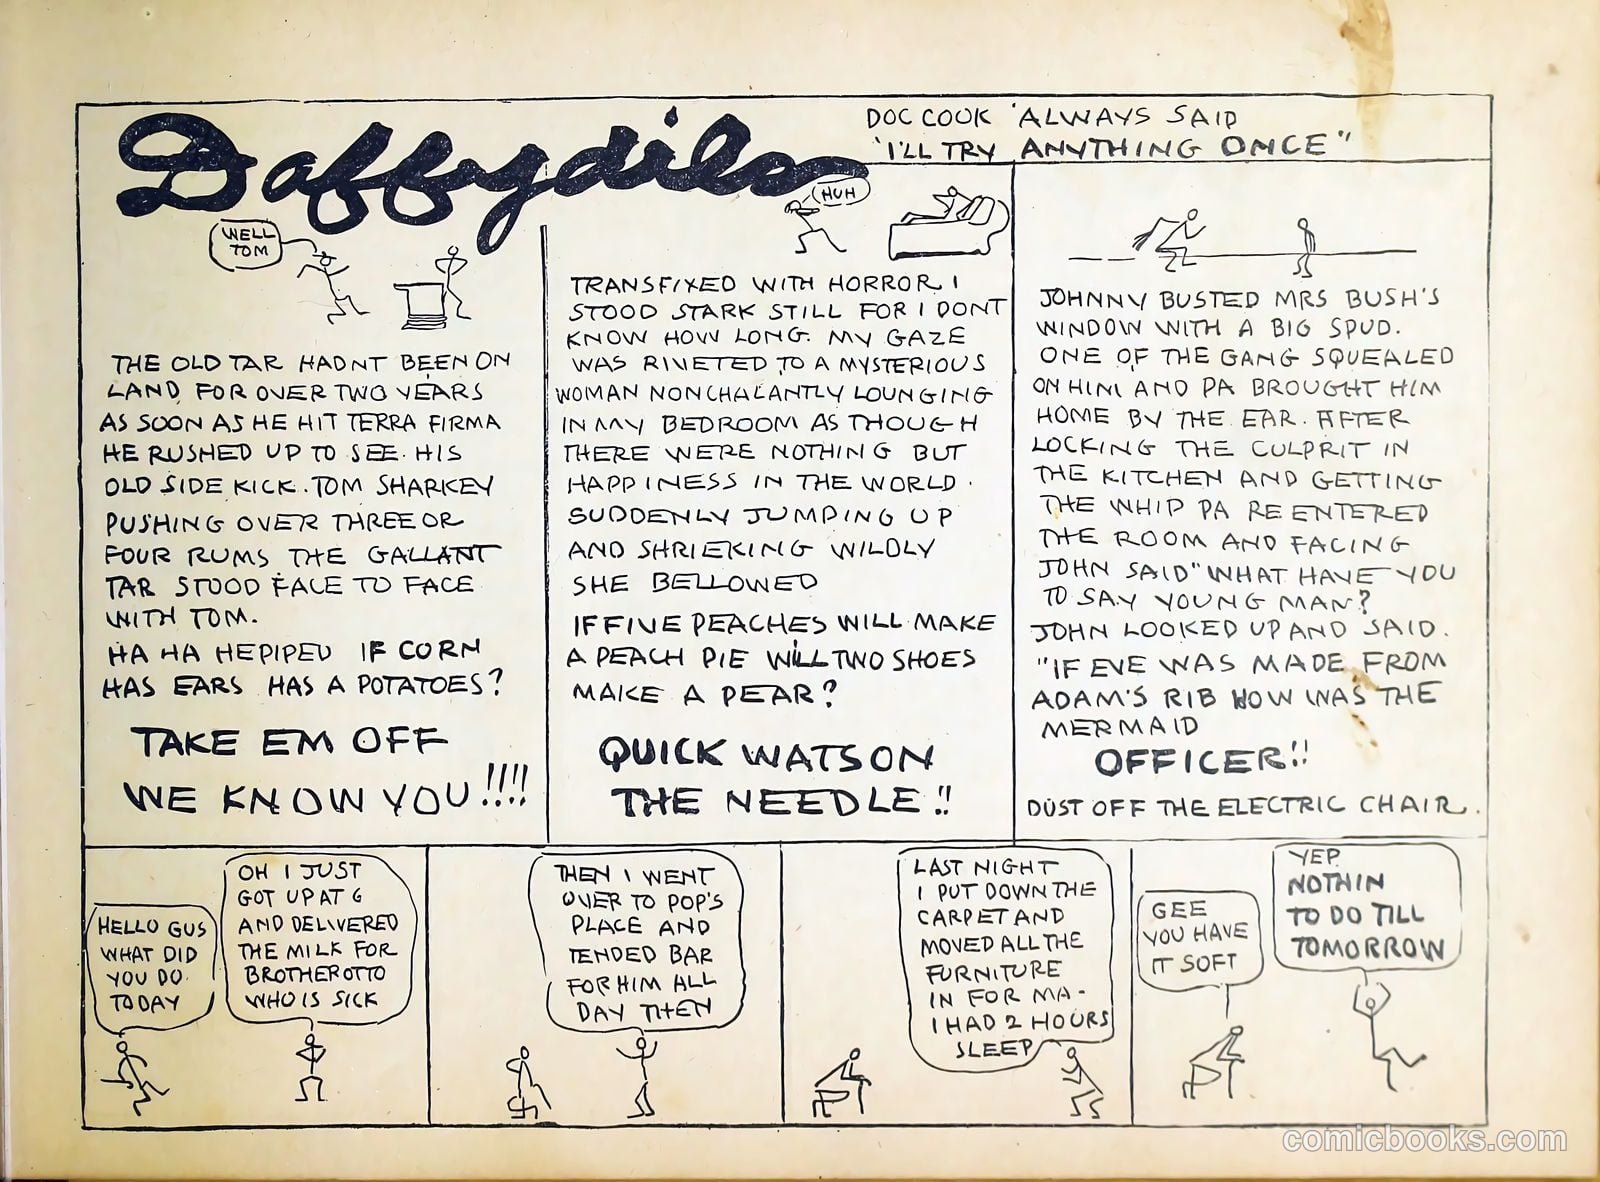 Daffydils
DOC COOK 'ALWAYS SAID
'I'LL TRY ANYTHING ONCE"
WELL
TOM
THE OLD TAR HADNT BEEN ON
LAND FOR OVER TWO YEARS
AS SOON AS HE HIT TERRA FIRMA
HE RUSHED UP TO SEE HIS
OLD SIDE KICK. TOM SHARKEY
PUSHING OVER THREE OR
FOUR RUMS THE GALLANT
TAR STOOD FACE TO FACE
WITH TOM.
HA HA HE PIPED IF CORN
HAS EARS HAS A POTATOES?
TAKE EM OFF
WE KNOW YOU!!!!
HUH
TRANSFIXED WITH HORROR I
STOOD STARK STILL FOR I DONT
KNOW HOW LONG. MY GAZE
WAS RIVETED TO A MYSTERIOUS
WOMAN NONCHALANTLY LOUNGING
IN MY BEDROOM AS THOUGH
THERE WERE NOTHING BUT
HAPPINESS IN THE WORLD.
SUDDENLY JUMPING UP
AND SHRIEKING WILDLY
SHE BELLOWED
IF FIVE PEACHES WILL MAKE
A PEACH PIE WILL TWO SHOES
MAKE A PEAR?
QUICK WATSON
THE NEEDLE!!
JOHNNY BUSTED MRS BUSH'S
WINDOW WITH A BIG SPUD.
ONE OF THE GANG SQUEALED
ON HIM AND PA BROUGHT HIM
HOME BY THE EAR. AFTER
LOCKING THE CULPRIT IN
THE KITCHEN AND GETTING
THE WHIP PA RE ENTERED
THE ROOM AND FACING
JOHN SAID "WHAT HAVE YOU
TO SAY YOUNG MAN?
JOHN LOOKED UP AND SAID.
"IF EVE WAS MADE FROM
ADAM'S RIB HOW WAS THE
MERMAID
OFFICER!!
DUST OFF THE ELECTRIC CHAIR.
HELLO GUS
WHAT DID
YOU DO
TODAY
OH I JUST
GOT UP AT 6
AND DELIVERED
THE MILK FOR
BROTHER OTTO
WHO IS SICK
THEN I WENT
OVER TO POP'S
PLACE AND
TENDED BAR
FOR HIM ALL
DAY THEN
LAST NIGHT
I PUT DOWN THE
CARPET AND
MOVED ALL THE
FURNITURE
IN FOR MA-
I HAD 2 HOURS
SLEEP
GEE
YOU HAVE
IT SOFT
YEP
NOTHIN
TO DO TILL
TOMORROW
comicbooks.com